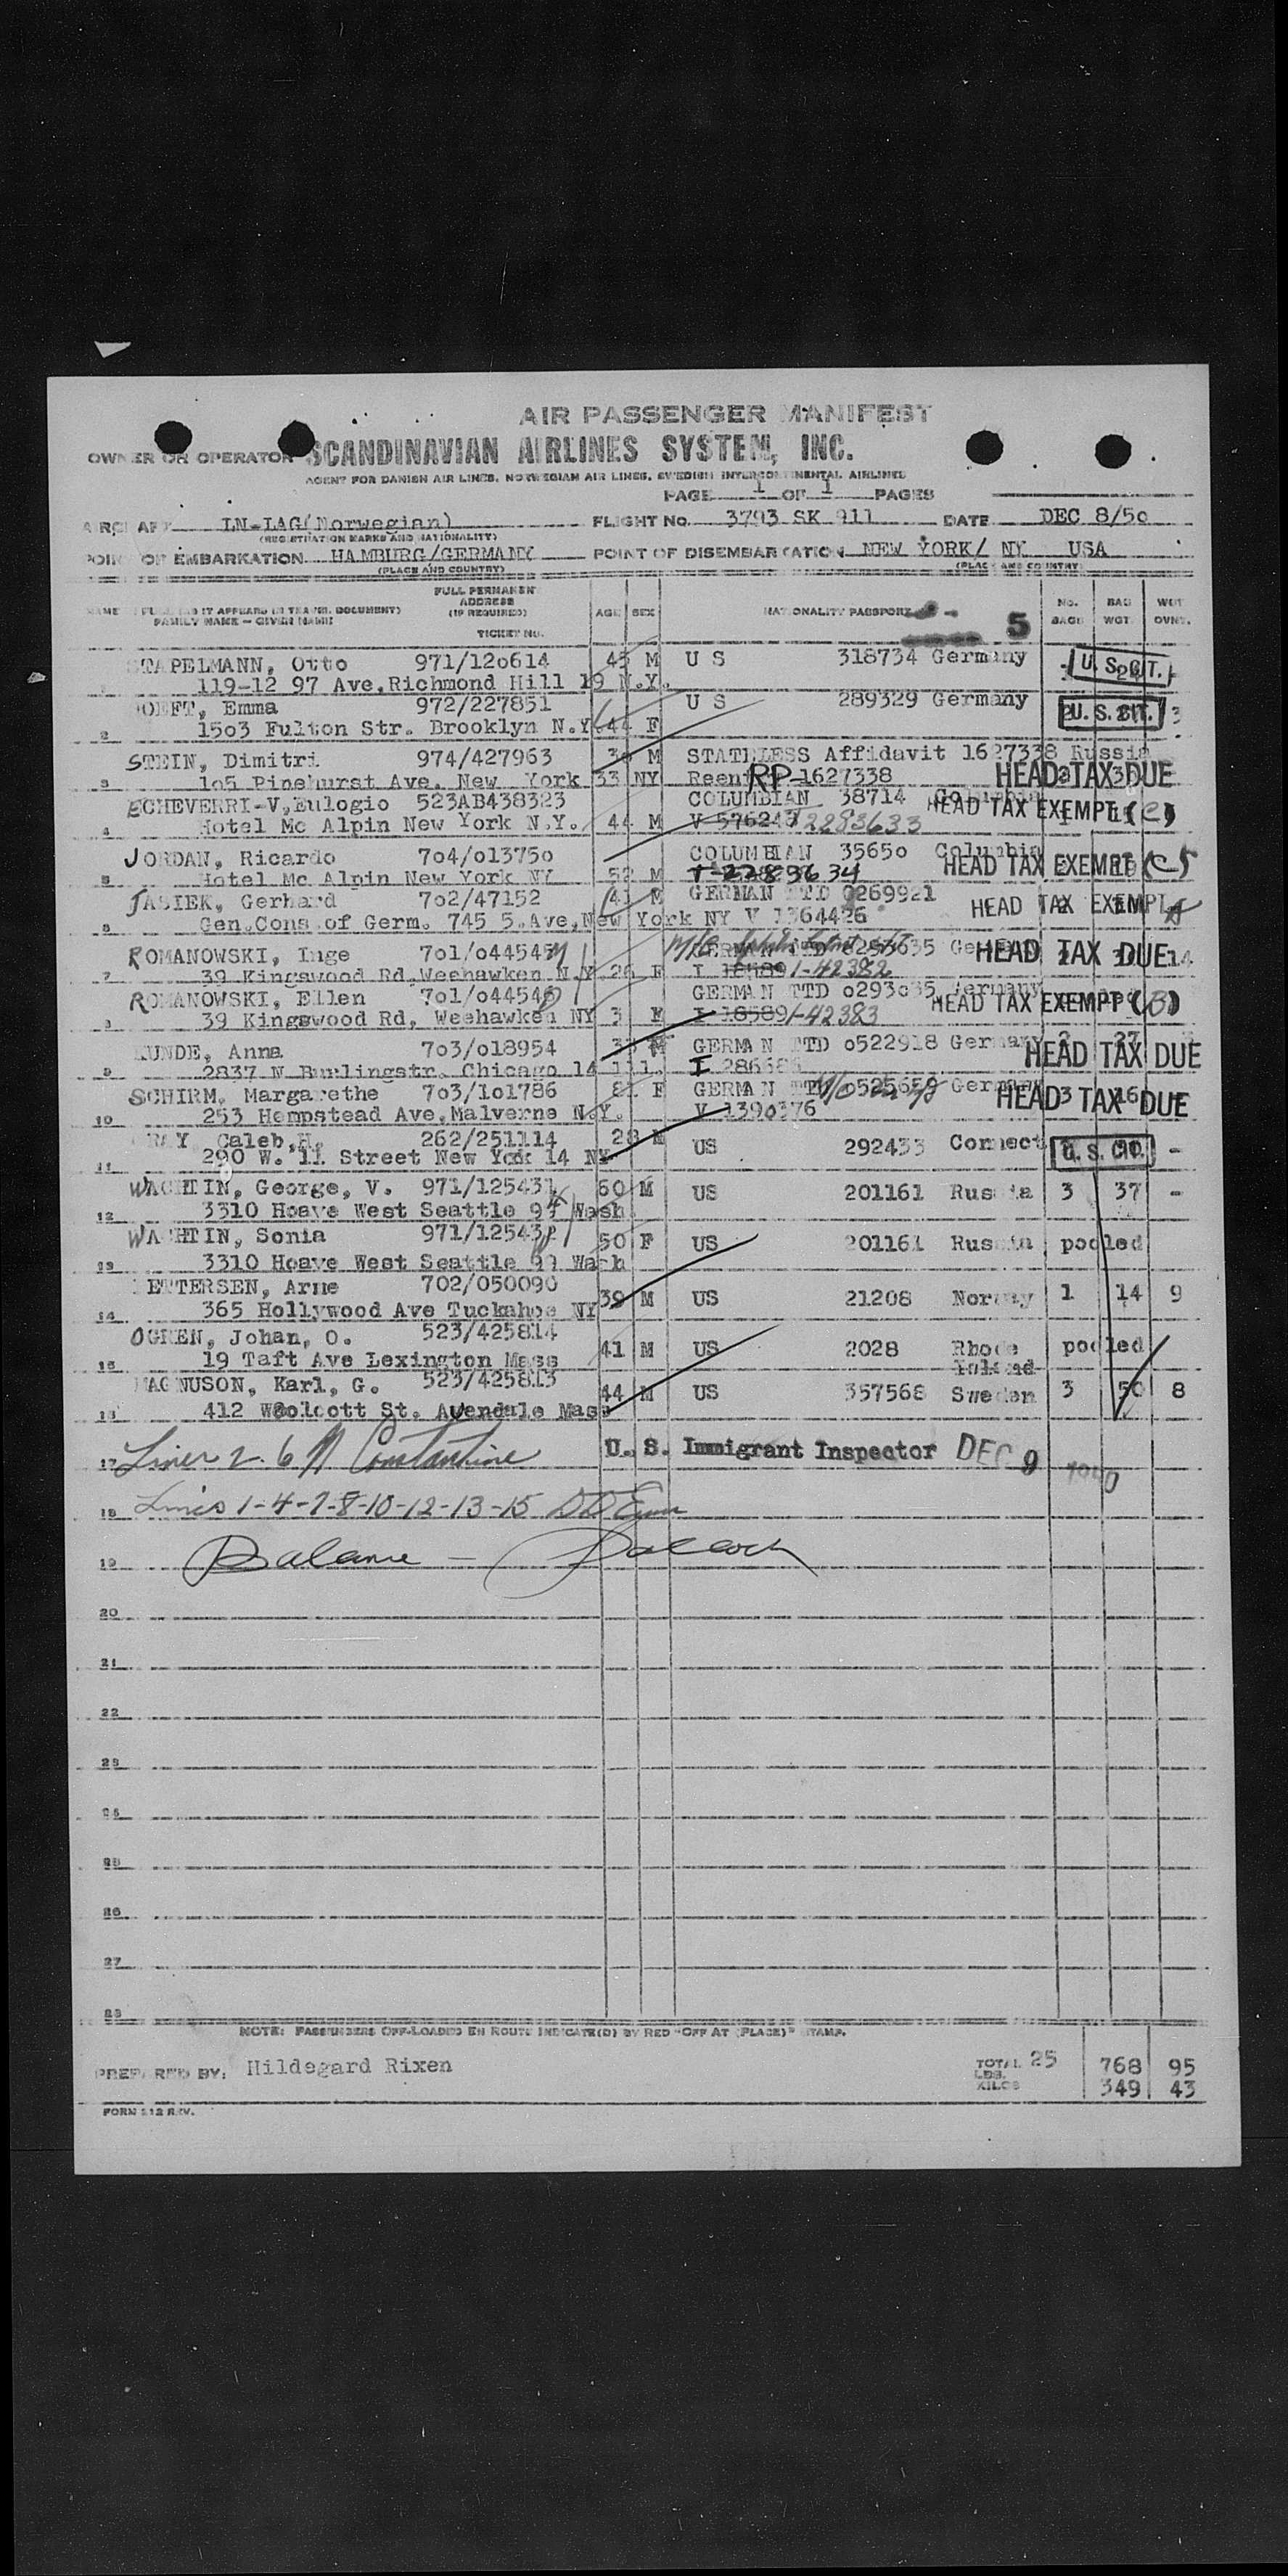 AIR PASSENGER MANIFEST
OWNER OR OPERATOR SCANDINAVIAN AIRLINES SYSTEM, INC.
AGENT FOR DANISH AIR LINES, NORWEGIAN AIR LINES, SWEDISH INTERCONTINENTAL AIRLINES
PAGE 1 OF 1 PAGES
LN-IAG(Norwegian) FLIGHT No. 3793 SK 911 DATE DEC 8/5o
(REGISTRATION MARKS AND NATIONALITY)
OF EMBARKATION HAMBURG/GERMANY POINT OF DISEMBARKATION NEW YORK/ NY USA
(PLACE AND COUNTRY) (PLACE AND COUNTRY)
FULL PERMANENT
ADDRESS
(IF REQUIRED)
TICKET NO.
FAMILY NAME - GIVEN NAME
AGE SEX NATIONALITY PASSPORT 5
NO. BAGS BAG WGT. WGT OVNT.
STAPELMANN, Otto 971/12o614 45 M U S 318734 Germany U. S. CIT.
1 119-12 97 Ave.Richmond Hill 19 N.Y.
Emma 972/227851 U S 289329 Germany U. S. CIT. 3
2 15o3 Fulton Str. Brooklyn N.Y. 44 F
STEIN, Dimitri 974/427963 M STATELESS Affidavit 1627338 Russia
3 1o5 Pinehurst Ave. New York 33 NY Reent RP-1627338 HEAD TAX DUE
ECHEVERRI-V,Eulogio 523AB438323 COLUMBIAN 38714 HEAD TAX EXEMPT (C)
4 Hotel Mc Alpin New York N.Y. 44 M V 2283633
JORDAN, Ricardo 7o4/o1375o COLUMBIAN 3565o Columbia
5 Hotel Mc Alpin New York NY 52 M 34 HEAD TAX EXEMPT
JASIEK, Gerhard 7o2/47152 41 M GERMAN TTD 0269921 HEAD TAX EXEMPT
6 Gen.Cons.of Germ. 745 5.Ave,New York NY V 1364426
ROMANOWSKI, Inge 7o1/o44545 GERMAN TTD HEAD TAX DUE 14
7 39 Kingswood Rd.Weehawken N.Y. 26 F I 18589 I-42382
ROMANOWSKI, Ellen 7o1/o44546 GERMAN TTD Germany
8 39 Kingswood Rd. Weehawken NY 3 F I 18589 I-42383 HEAD TAX EXEMPT (B)
KUNDE, Anna 7o3/o18954 GERMAN TTD o522918 Germany 27
9 2837 N Burlingstr. Chicago 14 Ill. I HEAD TAX DUE
SCHIRM, Margarethe 7o3/1o1786 81 F GERMAN Germany
10 253 Hempstead Ave.Malverne N.Y. V 1390376 HEAD TAX DUE
GRAY Caleb,H. 262/251114 28 M US 292433 Connect U. S. CIT. -
11 290 W. 11 Street New York 14 NY
WACHTIN, George, V. 971/125431 60 M US 201161 Russia 3 37 -
12 3310 Hoave West Seattle Wash
WACHTIN, Sonia 971/125432 50 F US 201161 Russia pooled
13 3310 Hoave West Seattle 99 Wash
PETTERSEN, Arne 702/050090 39 M US 21208 Norway 1 14 9
14 365 Hollywood Ave Tuckahoe NY
OGREN, Johan, O. 523/425814 41 M US 2028 Rhode pooled
15 19 Taft Ave Lexington Mass Island
MAGNUSON, Karl, G. 523/425813 44 M US 357568 Sweden 3 50 8
16 412 Woolcott St. Auendale Mass
17 Lines 2. 6 Constantine U. S. Immigrant Inspector DEC 9
18 Lines 1-4-7-8-10-12-13-15
19 Balance -
20
21
22
23
24
25
26
27
28
NOTE: PASSENGERS OFF-LOADED EN ROUTE INDICATE(D) BY RED "OFF AT (PLACE)" STAMP.
PREPARED BY: Hildegard Rixen TOTAL 25
LBS. 768 95
KILOS 349 43
FORM 112 REV.